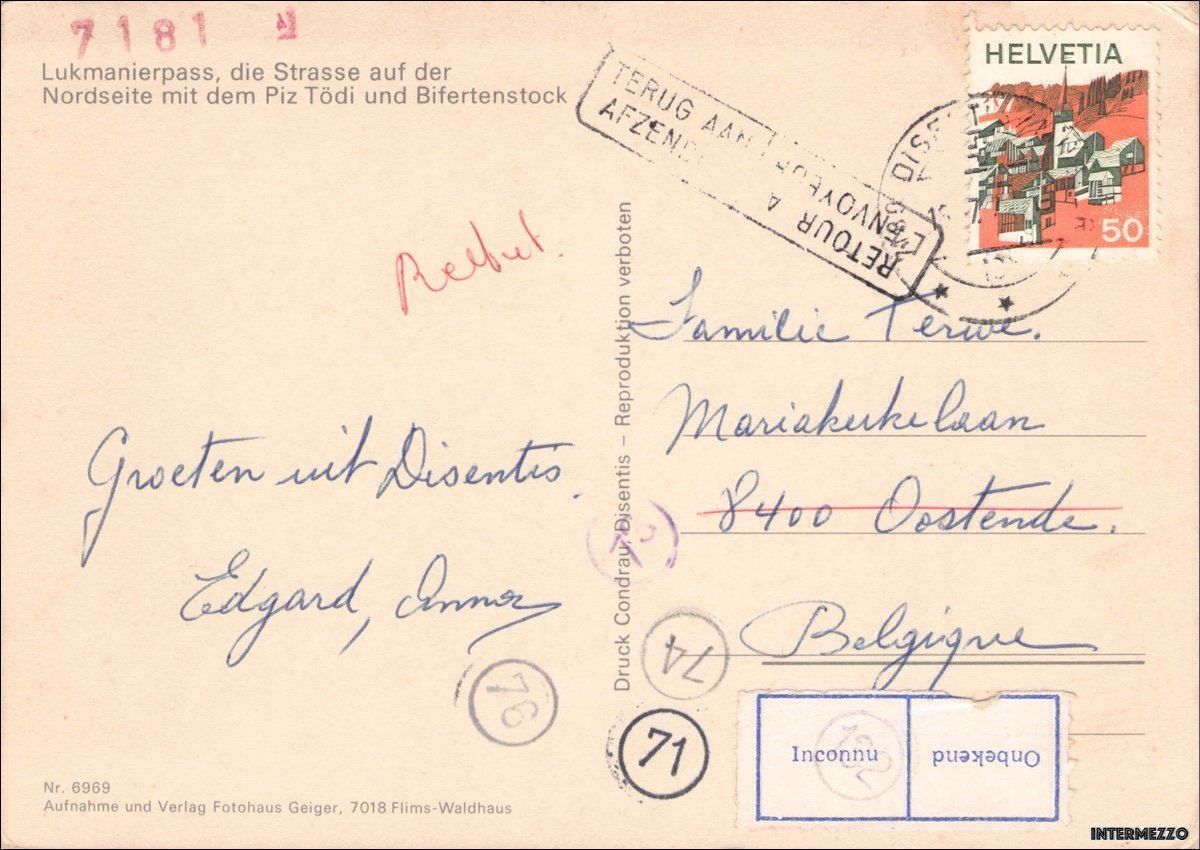 7181
Lukmanierpass, die Strasse auf der
Nordseite mit dem Piz Tödi und Bifertenstock
TERUG AAN
AFZEND
RETOUR A
L'ENVOYEUR
HELVETIA
50
Groeten uit Disentis.
Edgard, Anna
Druck Condrau, Disentis – Reproduktion verboten
Familie Terwe.
Mariakerkelaan
8400 Oostende.
Belgique
74
76
71
132
Inconnu
Onbekend
Nr. 6969
Aufnahme und Verlag Fotohaus Geiger, 7018 Flims-Waldhaus
INTERMEZZO